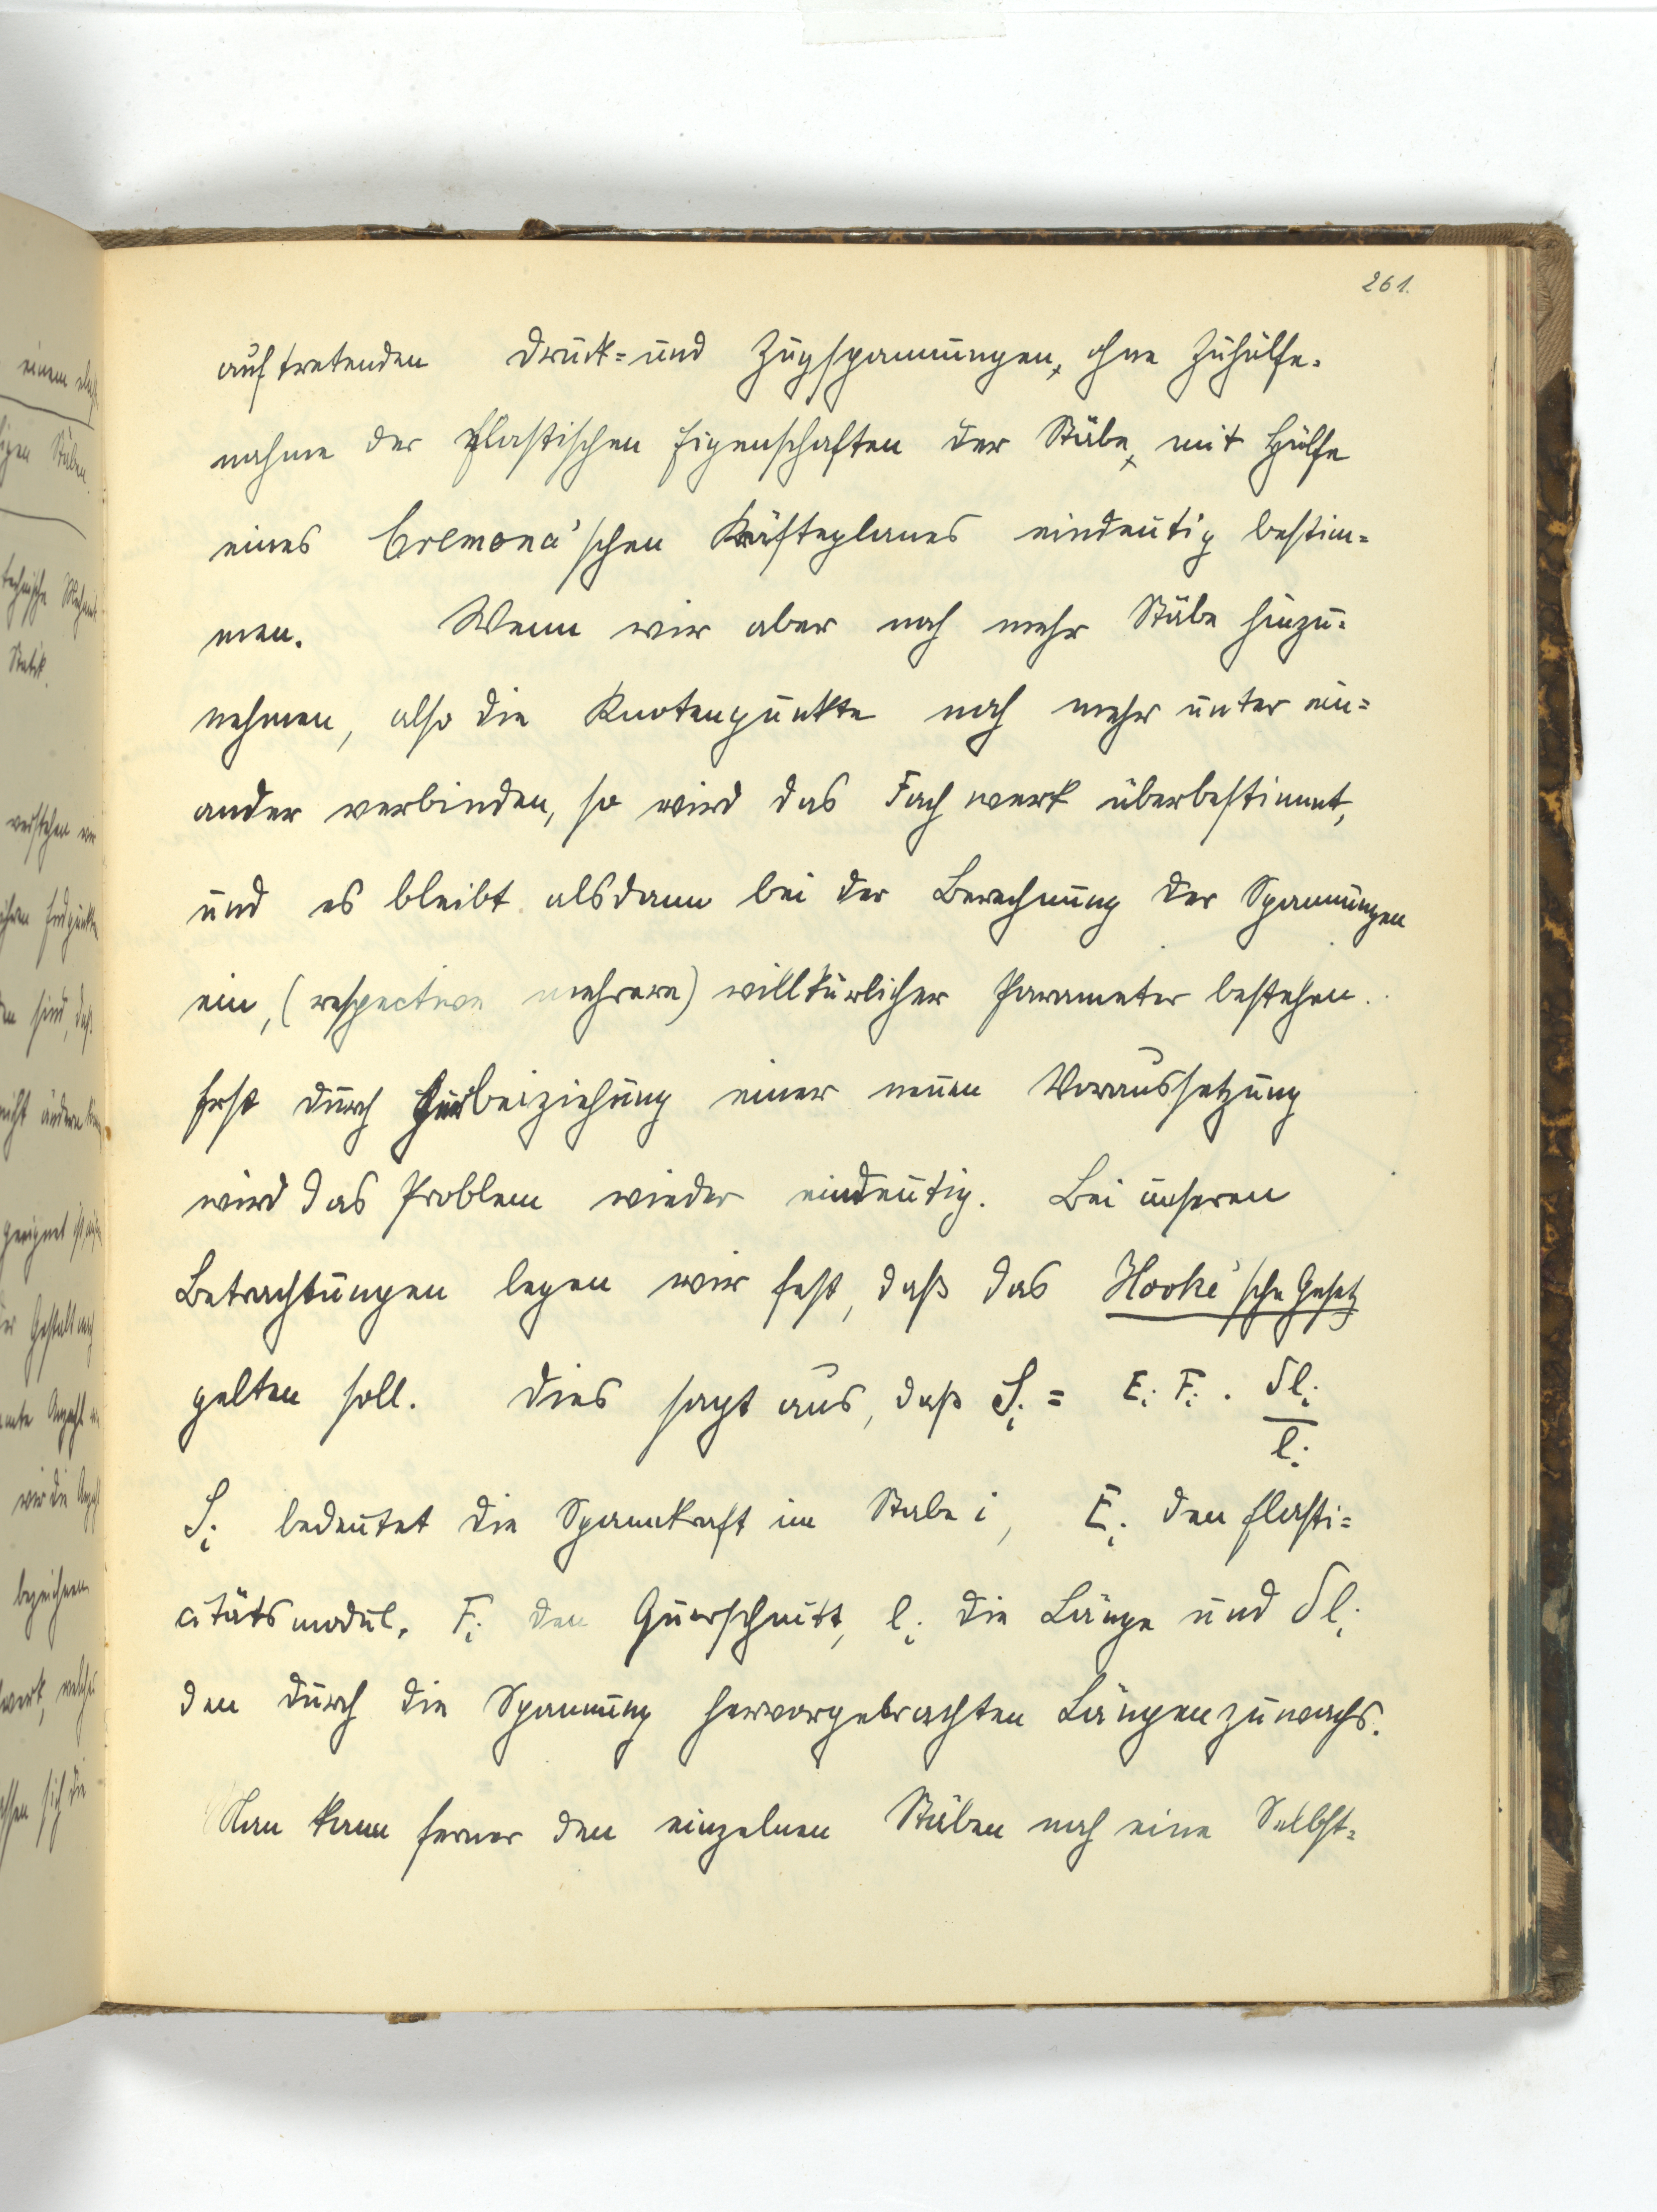 261.
auftretenden Druck- und Zugspannungen, ohne Zuhülfe-
nahme der elastischen Eigenschaften der Stäbe, mit Hülfe
eines Cremona'schen Kräfteplanes eindeutig bestim-
men. Wenn wir aber noch mehr Stäbe hinzu-
nehmen, also die Knotenpunkte noch mehr unter ein-
ander verbinden, so wird das Fachwerk überbestimmt,
und es bleibt alsdann bei der Berechnung der Spannungen
ein, (respective mehrere) willkürlicher Parameter bestehen.
Erst durch Herbeiziehung einer neuen Voraussetzung
wird das Problem wieder eindeutig. Bei unseren
Betrachtungen legen wir fest, daß das Hooke'sche Gesetz
gelten soll. Dies sagt aus, daß S_i = E_i F_i · δl_i / l_i
S_i bedeutet die Spannkraft im Stabe i, E_i den Elasti-
citätsmodul, F_i den Querschnitt, l_i die Länge und δl_i
den durch die Spannung hervorgebrachten Längenzuwachs.
Man kann ferner den einzelnen Stäben noch eine Selbst-